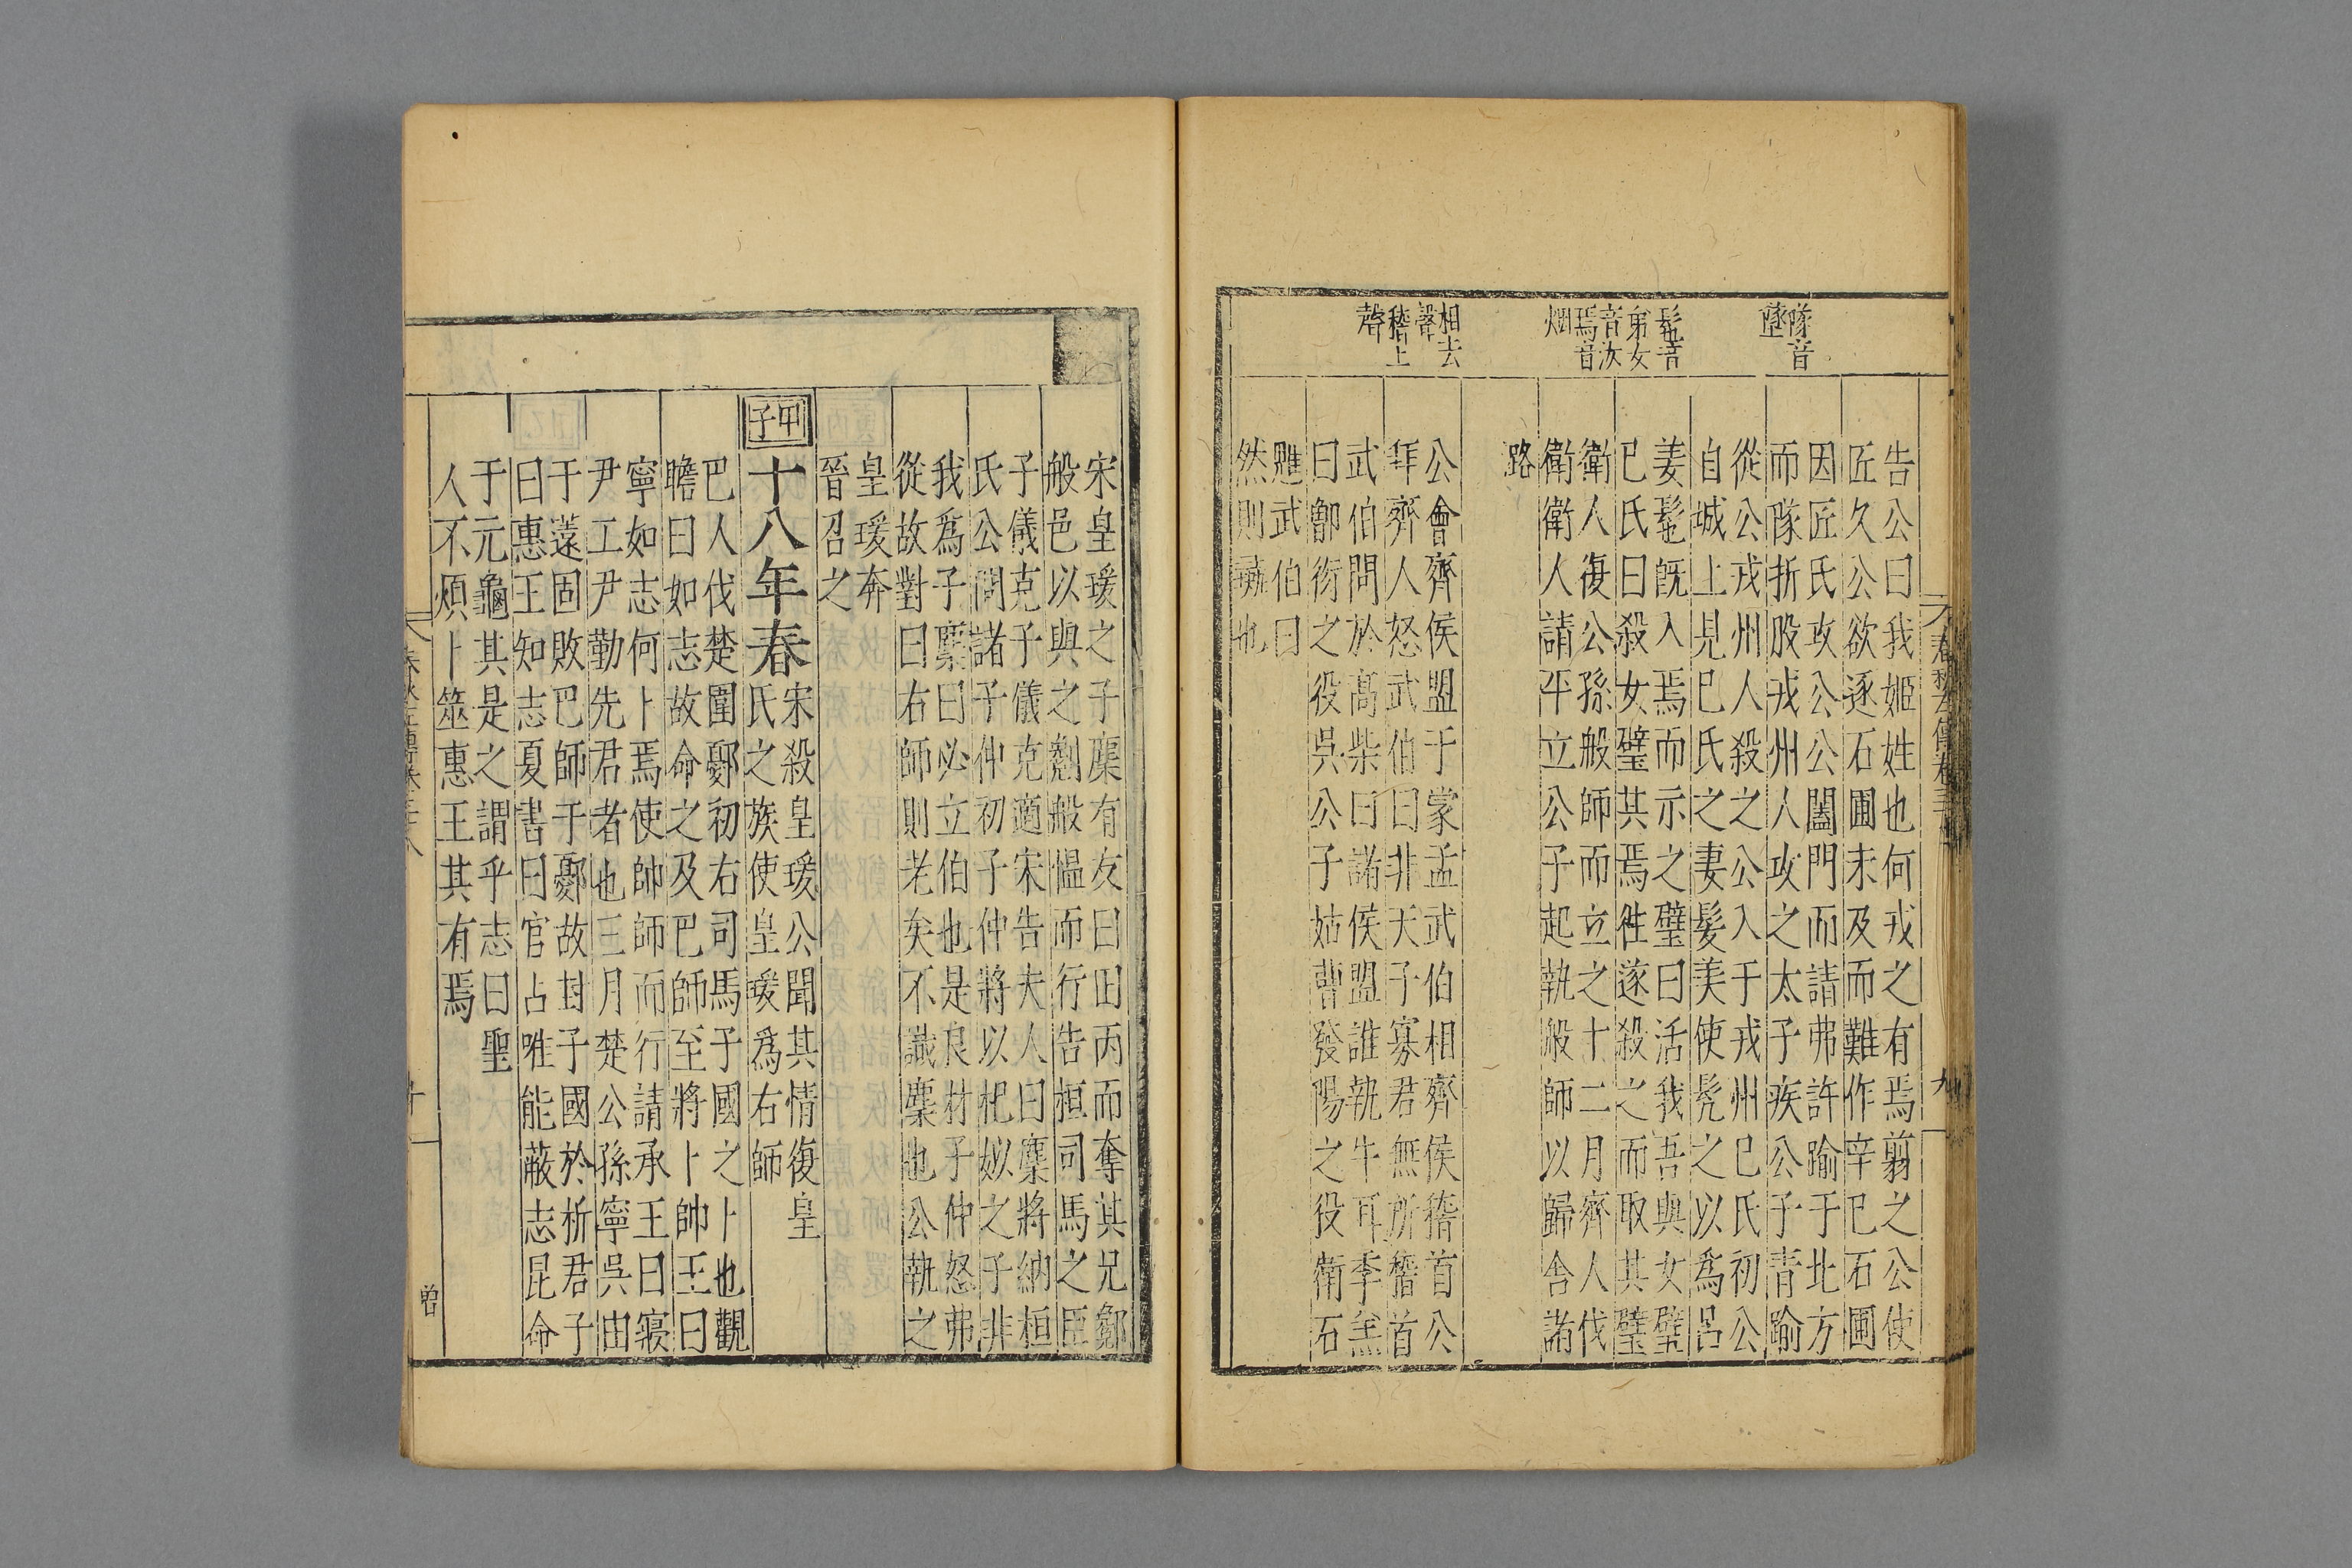 春秋左傳卷三十
九
隊音
墜
髢音
弟女
音汝
焉音
烟
相去
聲
稽上
聲
告公曰我姬姓也何戎之有焉翦之公使
匠久公欲逐石圃未及而難作辛巳石圃
因匠氏攻公公闔門而請弗許踰于北方
而隊折股戎州人攻之太子疾公子青踰
從公戎州人殺之公入于戎州己氏初公
自城上見己氏之妻髮美使髡之以為呂
姜髢既入焉而示之璧曰活我吾與女璧
己氏曰殺女璧其焉往遂殺之而取其璧
衛人復公孫般師而立之十二月齊人伐
衛衛人請平立公子起執般師以歸舍諸
路
公會齊侯盟于蒙孟武伯相齊侯稽首公
拜齊人怒武伯曰非天子寡君無所稽首
武伯問於高柴曰諸侯盟誰執牛耳季羔
曰鄫衍之役吳公子姑曹發陽之役衛石
魋武伯曰
然則彘也
宋皇瑗之子麇有友曰田丙而奪其兄鄬
般邑以與之鄬般慍而行告桓司馬之臣
子儀克子儀克適宋告夫人曰麇將納桓
氏公問諸子仲初子仲將以杞姒之子非
我為子麇曰必立伯也是良材子仲怒弗
從故對曰右師則老矣不識麇也公執之
皇瑗奔
晉召之
甲子
十八年春
宋殺皇瑗公聞其情復皇
氏之族使皇瑗為右師
巴人伐楚圍鄾初右司馬子國之卜也觀
瞻曰如志故命之及巴師至將卜帥王曰
寧如志何卜焉使帥師而行請承王曰寢
尹工尹勤先君者也三月楚公孫寧吳由
于薳固敗巴師于鄾故封子國於析君子
曰惠王知志夏書曰官占唯能蔽志昆命
于元龜其是之謂乎志曰聖
人不煩卜筮惠王其有焉
十
曾